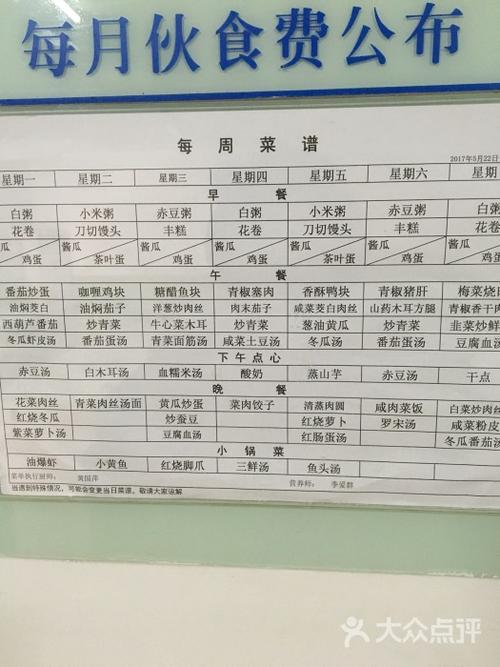 每月伙食费公布
每周菜谱
2017年5月22日
星期一 星期二 星期三 星期四 星期五 星期六 星期
早餐
白粥 小米粥 赤豆粥 白粥 小米粥 赤豆粥 白粥
花卷 刀切馒头 丰糕 花卷 刀切馒头 丰糕 花卷
酱瓜 鸡蛋 酱瓜 茶叶蛋 酱瓜 鸡蛋 酱瓜 鸡蛋 酱瓜 茶叶蛋 酱瓜 鸡蛋 酱瓜 鸡蛋
午餐
番茄炒蛋 咖喱鸡块 糖醋鱼块 青椒塞肉 香酥鸭块 青椒猪肝 梅菜烧肉
油焖茭白 油焖茄子 洋葱炒肉丝 肉末茄子 咸菜茭白肉丝 山药木耳方腿 青椒香干肉
西葫芦番茄 炒青菜 牛心菜木耳 炒青菜 葱油黄瓜 炒青菜 韭菜炒鲜
冬瓜虾皮汤 番茄蛋汤 青菜面筋汤 咸菜土豆汤 冬瓜汤 番茄蛋汤 豆腐血汤
下午点心
赤豆汤 白木耳汤 血糯米汤 酸奶 蒸山芋 赤豆汤 干点
晚餐
花菜肉丝 青菜肉丝汤面 黄瓜炒蛋 菜肉饺子 清蒸肉圆 咸肉菜饭 白菜炒肉丝
红烧冬瓜 炒蚕豆 红烧萝卜 罗宋汤 咸菜粉皮
紫菜萝卜汤 豆腐血汤 红肠蛋汤 冬瓜番茄汤
小锅菜
油爆虾 小黄鱼 红烧脚爪 三鲜汤 鱼头汤
菜单执行厨师: 黄国萍 营养师: 李爱群
当遇到特殊情况，可能会变更当日菜谱，敬请大家谅解
大众点评